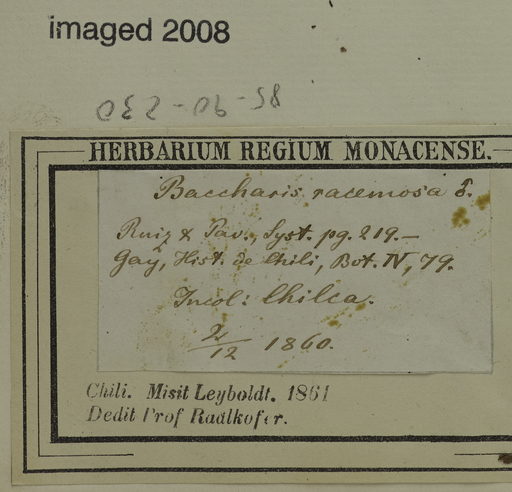 imaged 2008
HERBARIUM REGIUM MONACENSE.
Baccharis racemosa
Ruiz & Pav., Syst. pg. 219.—
Gay, Hist. de Chili, Bot. IV, 79.
Incol: Chilca.
2/12 1860.
Chili. Misit Leyboldt. 1861
Dedit Prof Radlkofer.